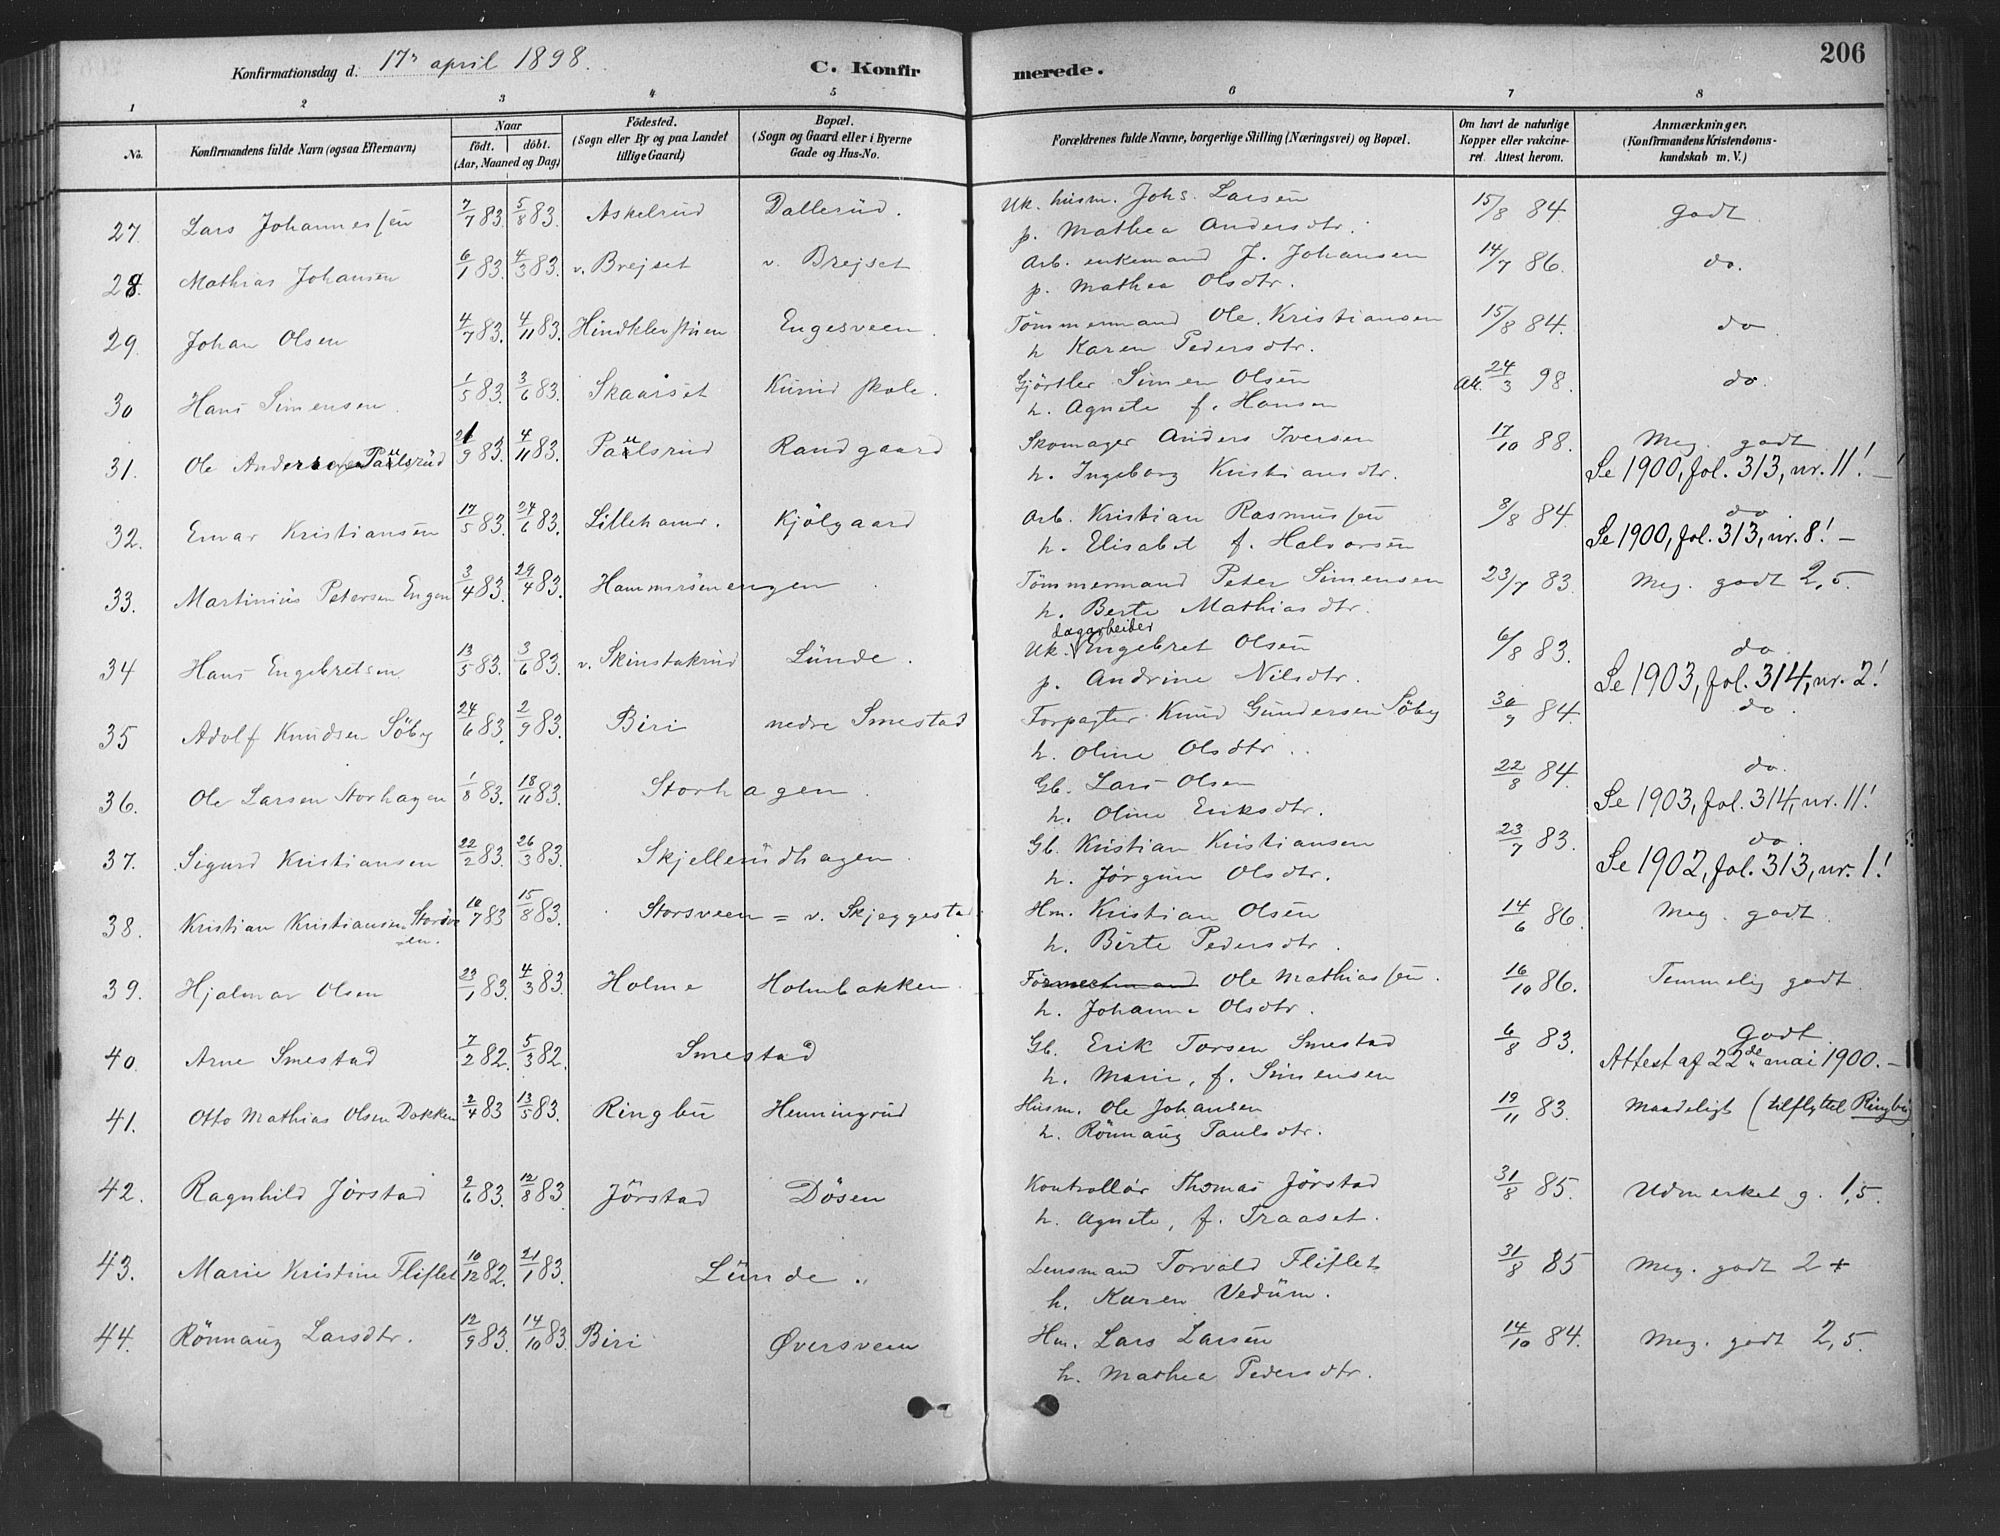 206
Konfirmationsdag d. 17. april 1898. C. Konfirmerede.
1 2 3 4 5 6 7 8
No. Konfirmandens fulde Navn (ogsaa Efternavn) Naar födt. döbt. (Aar, Maaned og Dag) Födested. (Sogn eller By og paa Landet tillige Gaard) Bopæl. (Sogn og Gaard eller i Byerne Gade og Hus-No. Forældrenes fulde Navne, borgerlige Stilling (Næringsvei) og Bopæl. Om havt de naturlige Kopper eller vakcineret. Attest herom. Anmærkninger. (Konfirmandens Kristendomskundskab m. V.)
27. Lars Johannessen 7/7 83. 5/8 83. Askelrud Dallerud. Uk. husm. Johs. Larsen 15/8 84 Godt
p. Mathea Andersdtr.
28. Mathias Johansen 6/1 83. 4/3 83. v. Brejset v. Brejset Arb. enkemand J. Johansen 14/7 86. do.
p. Mathea Olsdtr.
29. Johan Olsen 4/7 83. 4/11 83. Hindklevstuen Engesveen. Tömmermand Ole Kristiansen 15/8 84. do
h Karen Pedersdtr.
30 Hans Simensen. 1/5 83. 3/6 83. Skaarset Kurud skole. Gjörtler Simen Olsen Att. 24/3 98. do.
h. Agnete f. Hansen
31. Ole Andersen Paulsrud 21/9 83. 4/11 83. Paulsrud Randgaard Skomager Anders Iversen 17/10 88. Meg. godt
h. Ingeborg Kristiansdtr. Se 1900, fol. 313, nr. 11! -
32. Einar Kristiansen 17/5 83. 24/6 83. Lillehamr. Kjölgaard Arb. Kristian Rasmussen 8/8 84 do
h. Elisabet f. Halvorsen Se 1900, fol. 313, nr. 8! -
33. Martinius Petersen Engen 3/4 83. 29/4 83. Hammersönengen. Tömmermand Peter Simensen 23/7 83. Meg. godt 2,5.
h. Berte Mathiasdtr.
34 Hans Engebretsen 13/5 83. 3/6 83. v. Skinstakrud Lunde. Uk. dagarbeider Engebret Olsen 6/8 83. do
p. Andrine Nilsdtr. Se 1903, fol. 314, nr. 2!
35 Adolf Knudsen Söby 24/6 83. 2/9 83. Biri nedre Smestad Forpagter Knud Gundersen Söby 30/9 84. do.
h. Oline Olsdtr.
36. Ole Larsen Storhagen 1/8 83. 18/11 83. Storhagen. Gb. Lars Olsen 22/8 84. do.
h. Oline Eriksdtr. Se 1903, fol. 314, nr. 11!
37. Sigurd Kristiansen 22/2 83. 26/3 83. Skjellerudhagen Gb. Kristian Kristiansen 23/7 83. do
h. Jörgine Olsdtr. Se 1902, fol. 313, nr. 1!
38. Kristian Kristiansen Storsveen. 10/7 83 15/8 83. Storsveen = v. Skjeggestad. Hm. Kristian Olsen 14/6 86. Meg. godt.
h. Birte Pedersdtr.
39. Hjalmar Olsen 23/1 83. 4/3 83. Holme Holmbakken. Ole Mathiassen. 16/10 86. Temmelig godt
h. Johanne Olsdtr.
40. Arne Smestad 7/2 82. 5/3 82. Smestad Gb. Erik Torsen Smestad 6/8 83. Godt
h. Marie, f. Simensen Attest af 22de mai 1900. -
41. Otto Mathias Olsen Dokken 2/4 83 13/5 83. Ringbu Henningrud Husm. Ole Johansen 19/11 83. Maadeligt (tilflyttet Ringbu)
h. Rönnaug Paulsdtr.
42. Ragnhild Jörstad 2/6 83. 12/8 83. Jörstad Dösen Kontrollör Thomas Jörstad 31/8 85. Udmerket g. 1,5.
h. Agnete, f. Traaset.
43. Marie Kristine Fliflet 10/12 82. 21/1 83. Lunde. Lensmand Torvald Fliflet 31/8 85 Meg. godt 2 +
h. Karen Vedum.
44. Rönnaug Larsdtr. 12/9 83. 14/10 83. Biri Øversveen Hm. Lars Larsen 14/10 84. Meg. godt 2,5.
h. Mathea Pedersdtr.